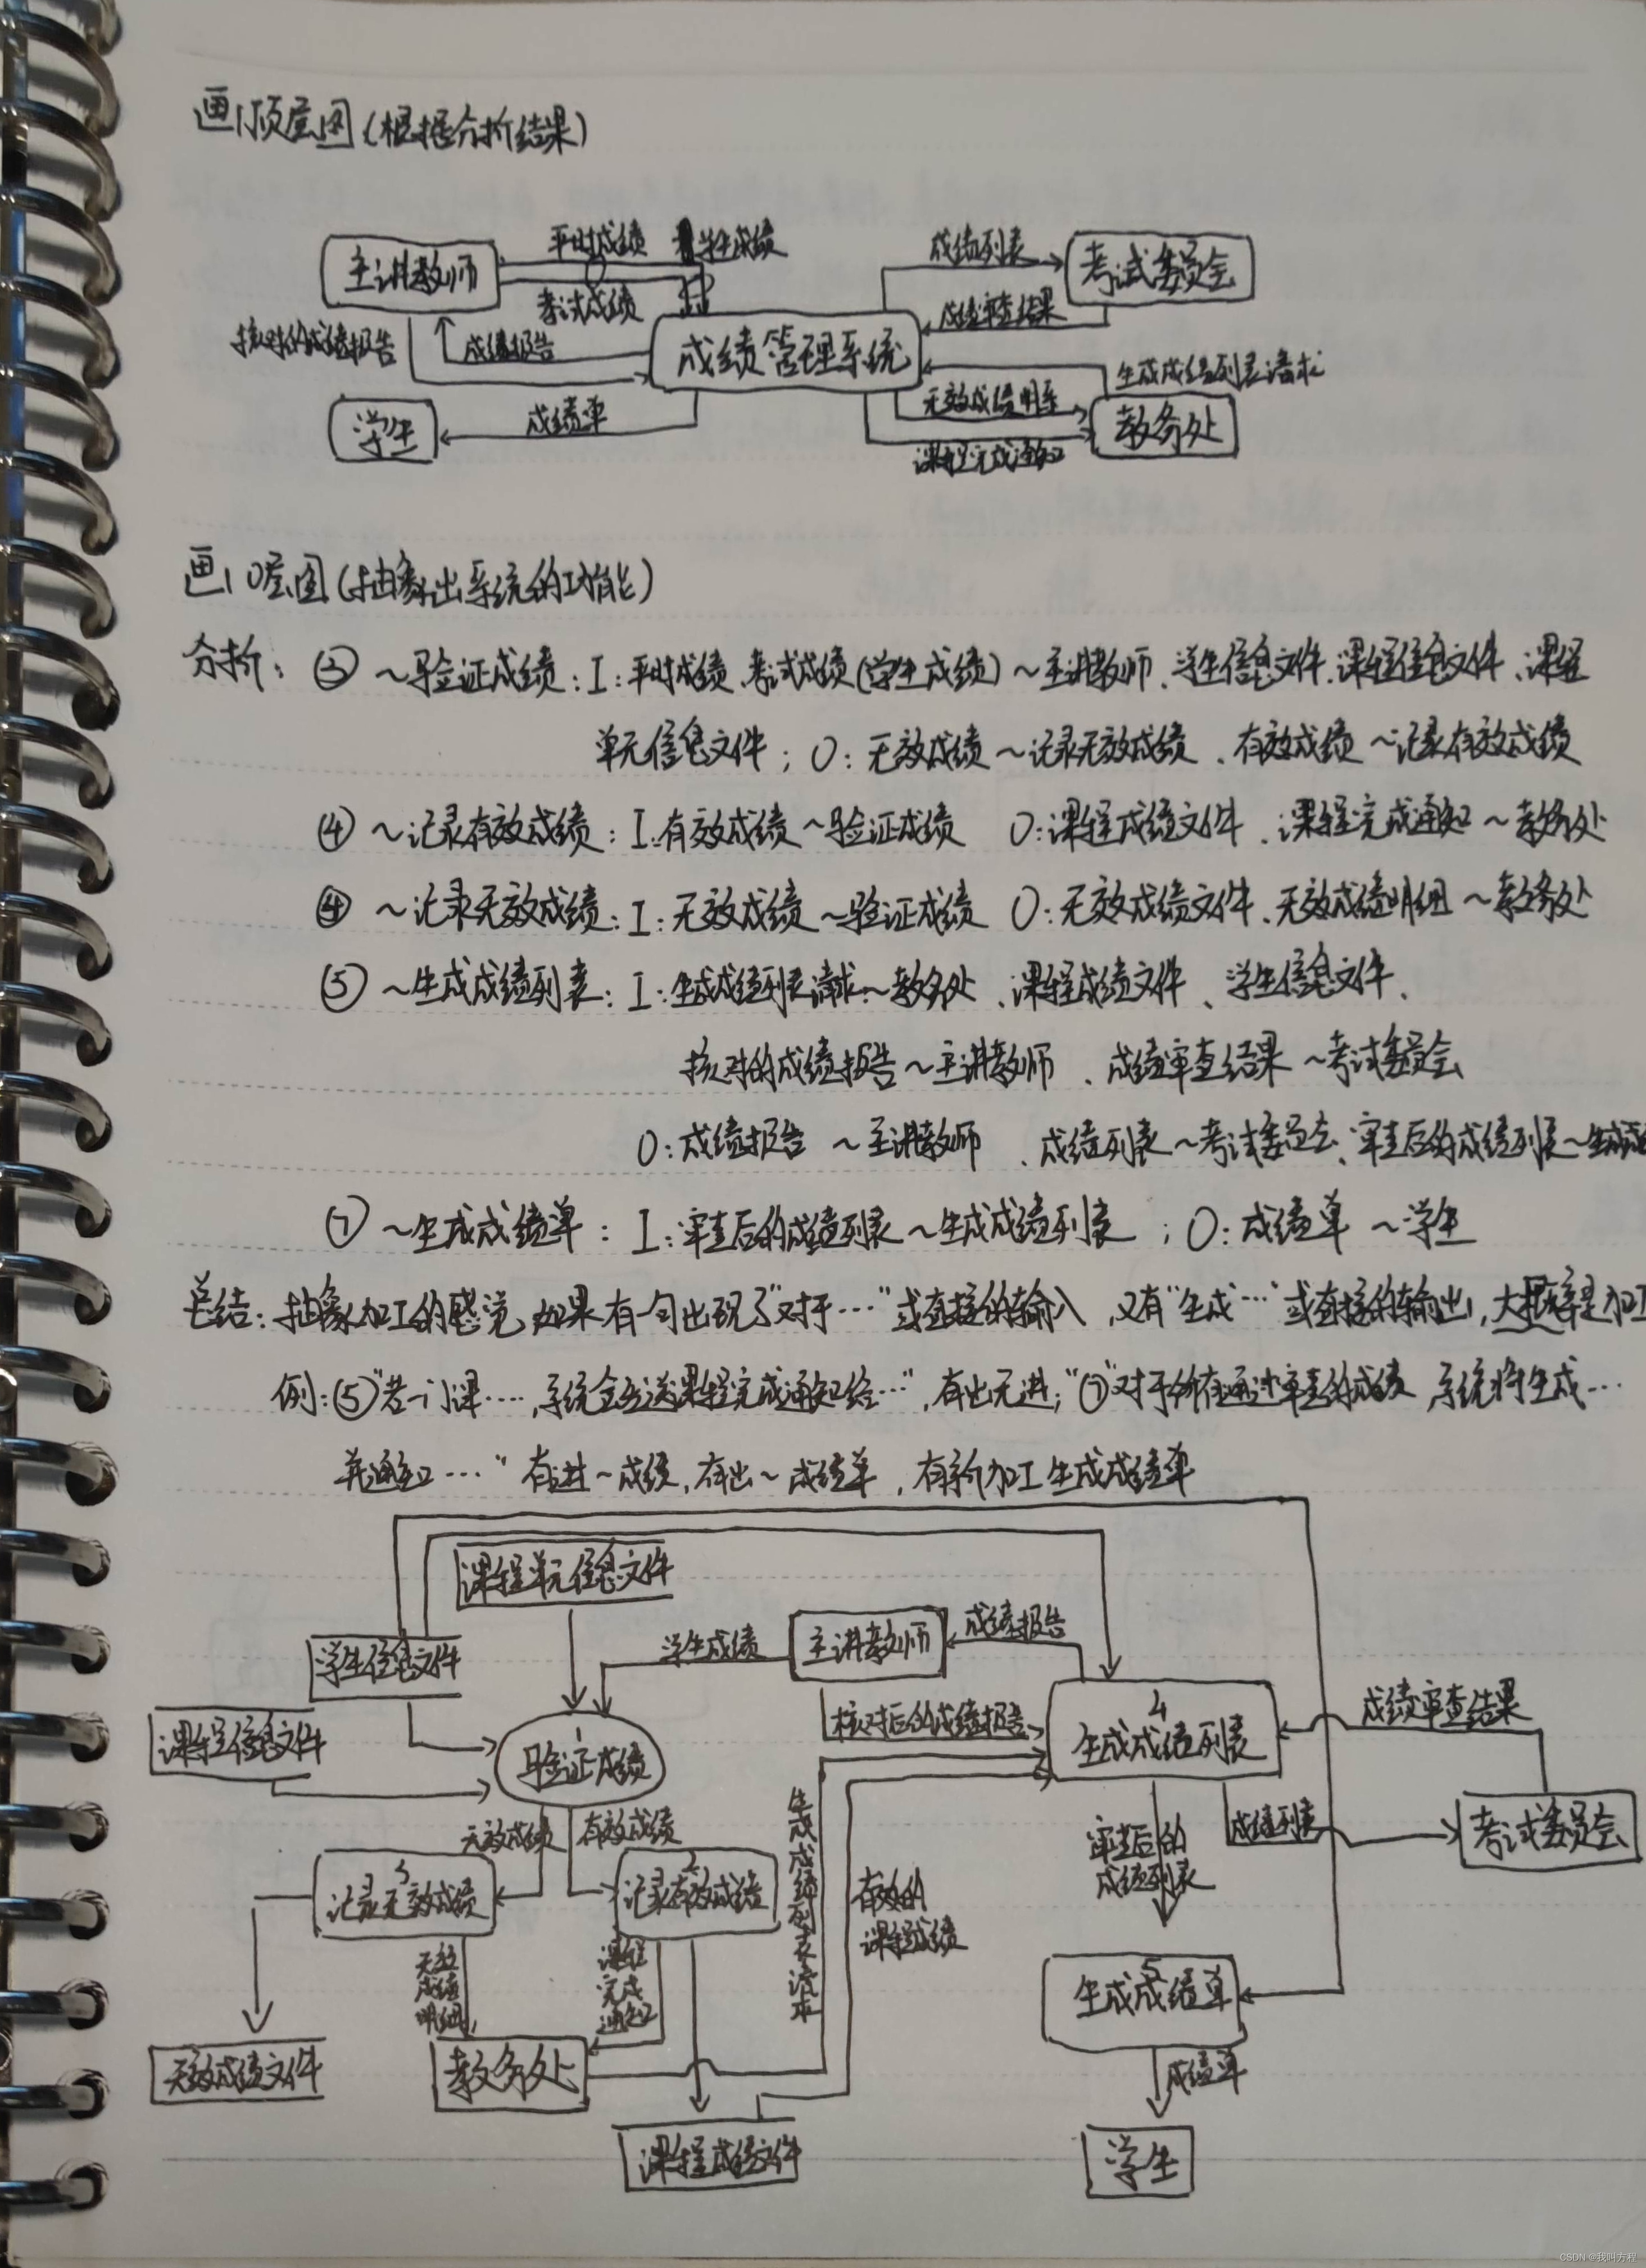 画顶层图(根据分析结果)
平时成绩 学生成绩
主讲教师
考试成绩
成绩列表
考试委员会
成绩审查结果
核对的成绩报告
成绩报告
成绩管理系统
生成成绩列表请求
无效成绩明细
学生
成绩单
教务处
课程完成通知
画0层图(抽象出系统的功能)
分析: ③ ~验证成绩: I: 平时成绩、考试成绩(学生成绩) ~主讲教师、学生信息文件、课程信息文件、课程
单元信息文件; O: 无效成绩 ~记录无效成绩、有效成绩 ~记录有效成绩
④ ~记录有效成绩: I: 有效成绩 ~验证成绩 O: 课程成绩文件、课程完成通知 ~教务处
④ ~记录无效成绩: I: 无效成绩 ~验证成绩 O: 无效成绩文件、无效成绩明细 ~教务处
⑤ ~生成成绩列表: I: 生成成绩列表请求 ~教务处、课程成绩文件、学生信息文件、
核对的成绩报告 ~主讲教师、成绩审查结果 ~考试委员会
O: 成绩报告 ~主讲教师、成绩列表 ~考试委员会、审查后的成绩列表 ~生成成
⑦ ~生成成绩单: I: 审查后的成绩列表 ~生成成绩列表; O: 成绩单 ~学生
总结: 抽象加工的感觉, 如果有一句出现了"对于…"或直接的输入, 又有"生成…"或直接的输出, 大概率是加工
例: ⑤"若一门课…., 系统会发送课程完成通知给…", 有出无进; "⑦对于所有通过审查的成绩 系统将生成…
并通知…" 有进~成绩, 有出~成绩单, 有新加工生成成绩单
课程单元信息文件
学生信息文件
学生成绩
主讲教师
成绩报告
课程信息文件
1
验证成绩
核对后的成绩报告
4
生成成绩列表
成绩审查结果
无效成绩
有效成绩
生成成绩列表请求
审查后的
成绩列表
成绩列表
考试委员会
3
记录无效成绩
2
记录有效成绩
有效的
课程成绩
无效
成绩
明细
课程
完成
通知
5
生成成绩单
无效成绩文件
教务处
成绩单
课程成绩文件
学生
CSDN @我叫方程